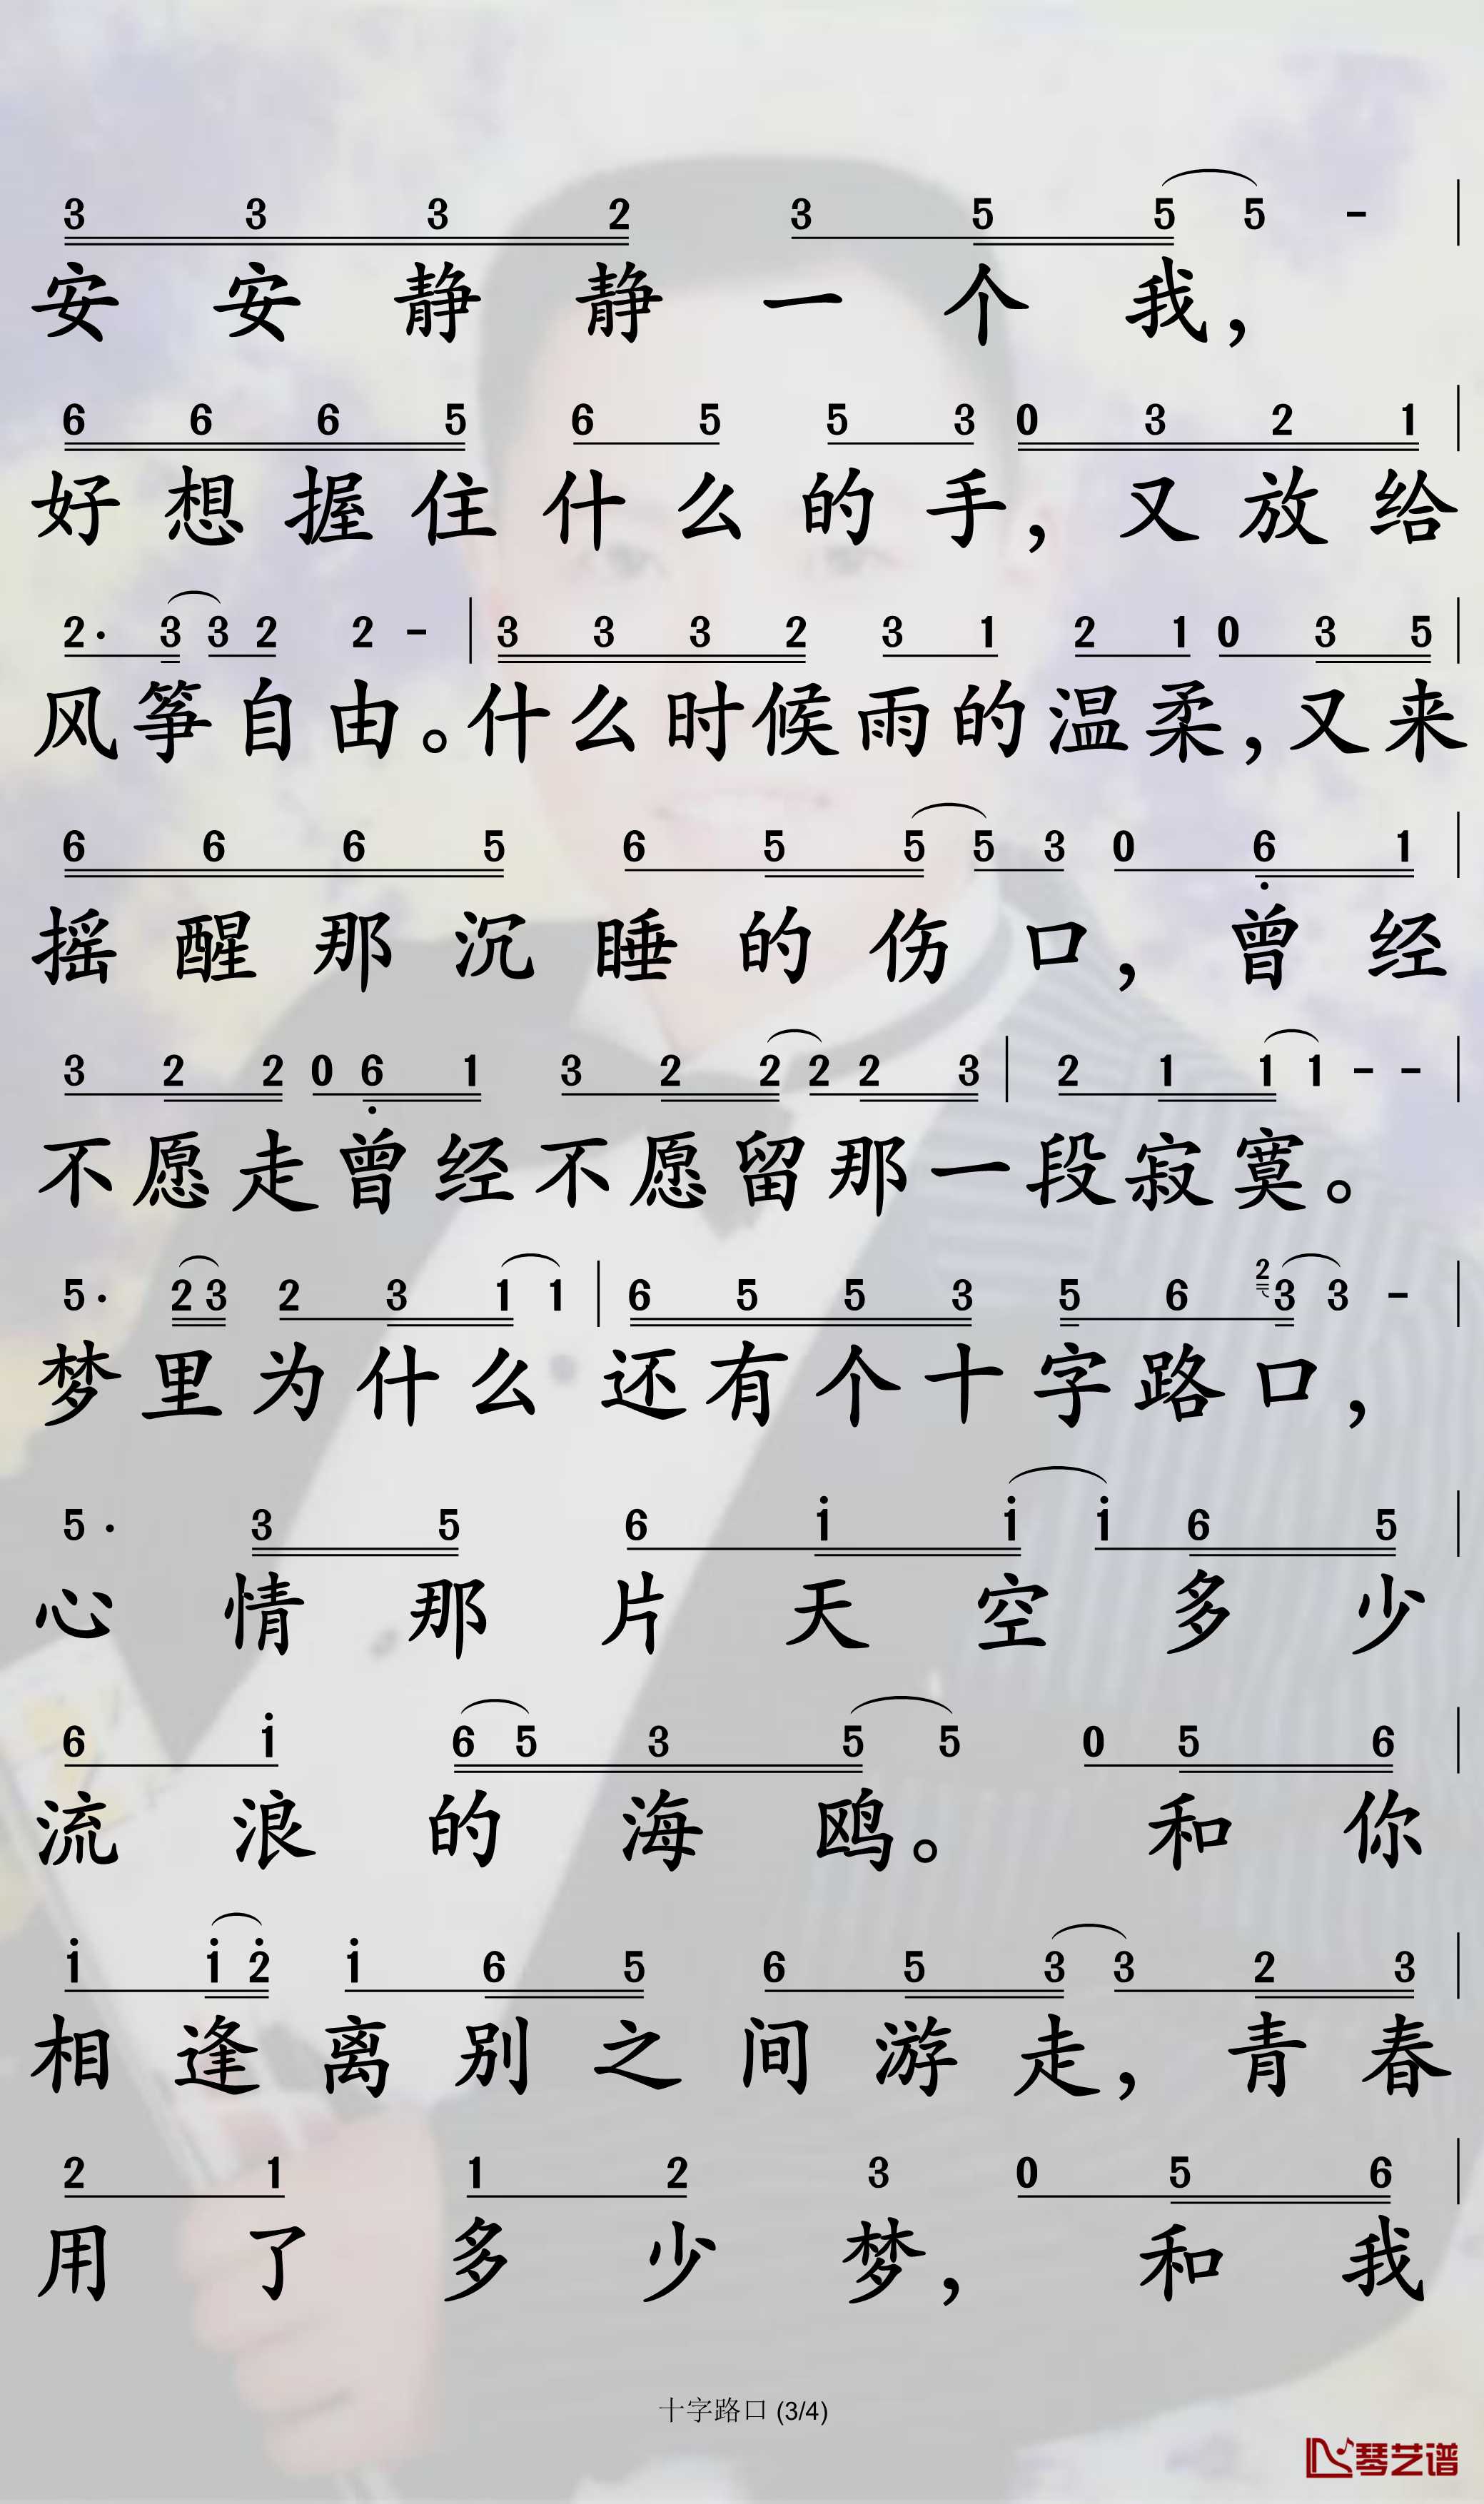 3 3 3 2 3 5 5 5 -
安安静静一个我，
6 6 6 5 6 5 5 3 0 3 2 1
好想握住什么的手，又放给
2· 3 3 2 2 - 3 3 3 2 3 1 2 1 0 3 5
风筝自由。什么时候雨的温柔，又来
6 6 6 5 6 5 5 5 3 0 6̣ 1
摇醒那沉睡的伤口，曾经
3 2 2 0 6̣ 1 3 2 2 2 2 3 2 1 1 1 - -
不愿走曾经不愿留那一段寂寞。
5· 2 3 2 3 1 1 6 5 5 3 5 6 2 3 3 -
梦里为什么还有个十字路口，
5· 3 5 6 i i i 6 5
心情那片天空多少
6 i 6 5 3 5 5 0 5 6
流浪的海鸥。和你
i i 2̇ i 6 5 6 5 3 3 2 3
相逢离别之间游走，青春
2 1 1 2 3 0 5 6
用了多少梦，和我
十字路口 (3/4)
琴艺谱